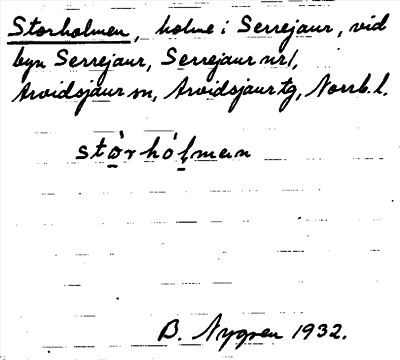 Storholmen, holme i Serrejaur, vid
byn Serrejaur, Serrejaur nr 1,
Arvidsjaur sn, Arvidsjaur tg, Norrb. l.
stò̱rhóḻmɐn
B. Nygren 1932.